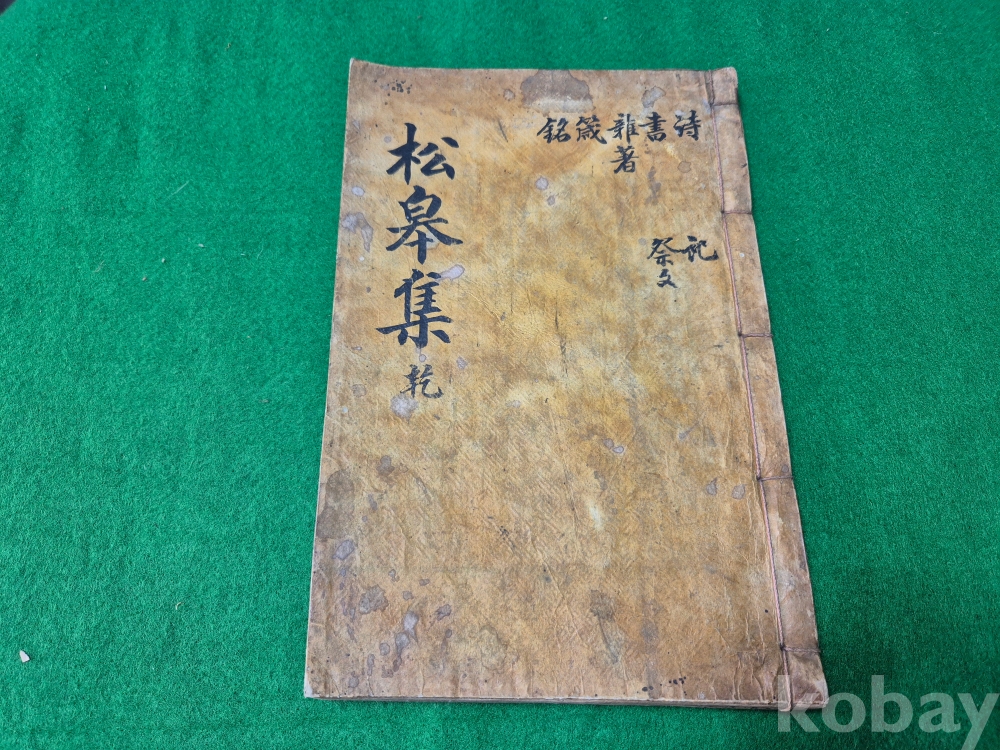 松皐集 乾
詩
書
雜著
箴
銘
記
祭文
kobay